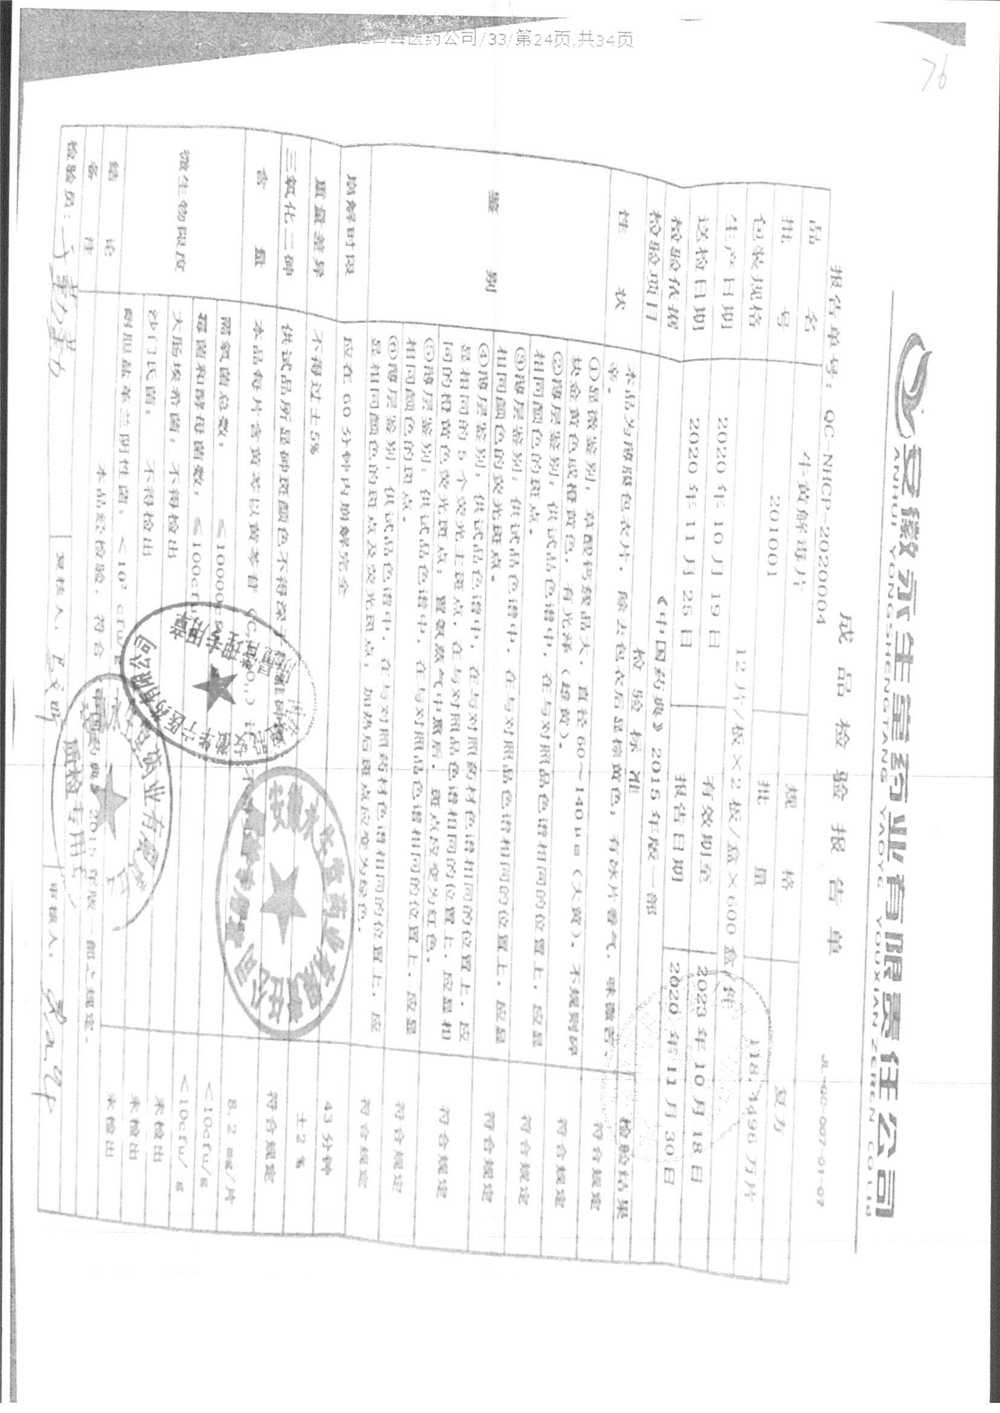 医药公司/33/第24页,共34页
76
安徽永生堂药业有限责任公司
ANHUI YONGSHENGTANG YAOYE YOUXIAN ZEREN CO.,LTD
成品检验报告单
报告单号：QC-NJCP-2020004
JL-QC-007-01-07
品名 牛黄解毒片 规格 复方
批号 201001 批量
包装规格 12片/板×2板/盒×600盒/件
生产日期 2020年10月19日 有效期至 2023年10月18日
送检日期 2020年11月25日 报告日期 2020年11月30日
检验依据 《中国药典》2015年版一部
检验项目 检验标准 检验结果
性状 本品为薄膜包衣片，除去包衣后显棕黄色；有冰片香气，味微苦、辛。 符合规定
鉴别 ①显微鉴别：草酸钙簇晶大，直径60～140μm（大黄）。不规则碎块金黄色或橙黄色，有光泽（雄黄）。 符合规定
②薄层鉴别：供试品色谱中，在与对照品色谱相同的位置上，应显相同颜色的斑点。 符合规定
③薄层鉴别：供试品色谱中，在与对照品色谱相同的位置上，应显相同颜色的荧光斑点。 符合规定
④薄层鉴别：供试品色谱中，在与对照药材色谱相同的位置上，应显相同的5个荧光主斑点，在与对照品色谱相同的位置上，应显相同的橙黄色荧光斑点；置氨蒸气中熏后，斑点应变为红色。 符合规定
⑤薄层鉴别：供试品色谱中，在与对照品色谱相同的位置上，应显相同颜色的斑点。 符合规定
⑥薄层鉴别：供试品色谱中，在与对照药材色谱相同的位置上，应显相同颜色的斑点及荧光斑点；加热后斑点应变为绿色。 符合规定
崩解时限 应在60分钟内崩解完全 43分钟
重量差异 不得过±5% ±2%
三氧化二砷 供试品所显砷斑颜色不得深于 符合规定
含量 本品每片含黄芩以黄芩苷 8.2mg/片
微生物限度 需氧菌总数： ≤1000 <10cfu/g
霉菌和酵母菌数： ≤100cfu <10cfu/g
大肠埃希菌：不得检出 未检出
沙门氏菌： 不得检出 未检出
耐胆盐革兰阴性菌：<10² cfu 未检出
结论 本品经检验，符合《中国药典》2015年版一部之规定。
备注
检验员： 复核人： 审核人：
安徽永生堂药业有限责任公司
质检专用章